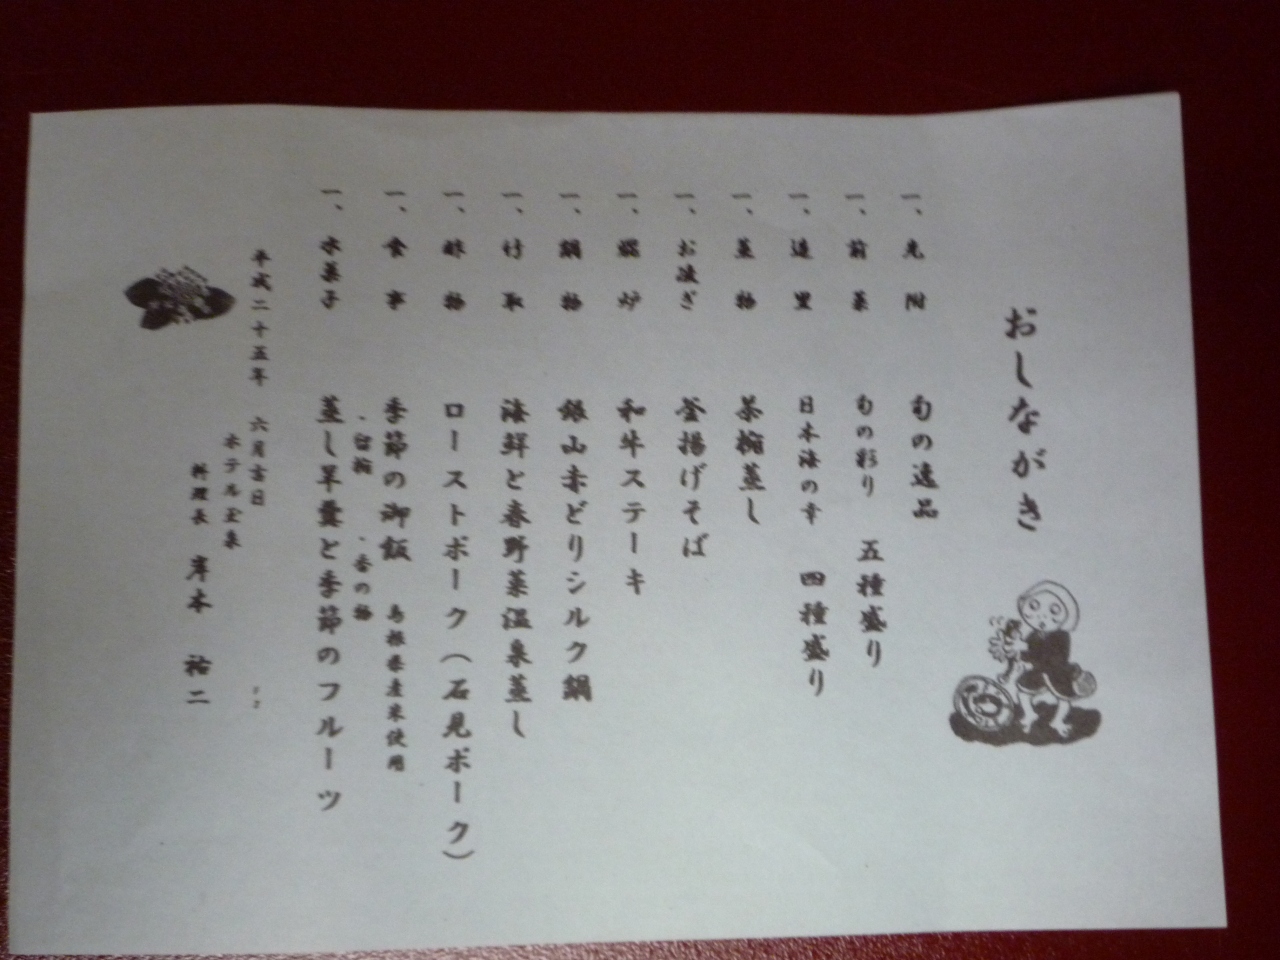 おしながき
一、先附 旬の逸品
一、前菜 旬の彩り 五種盛り
一、造里 日本海の幸 四種盛り
一、蒸物 茶椀蒸し
一、お凌ぎ 釜揚げそば
一、焜炉 和牛ステーキ
一、鍋物 銀山赤どりシルク鍋
一、竹取 海鮮と春野菜温泉蒸し
一、酢物 ローストポーク(石見ポーク)
一、食事 季節の御飯 島根県産米使用
・留椀 ・香の物
一、水菓子 蒸し羊羹と季節のフルーツ
平成二十五年 六月吉日
ホテル玉泉
料理長 岸本 祐二